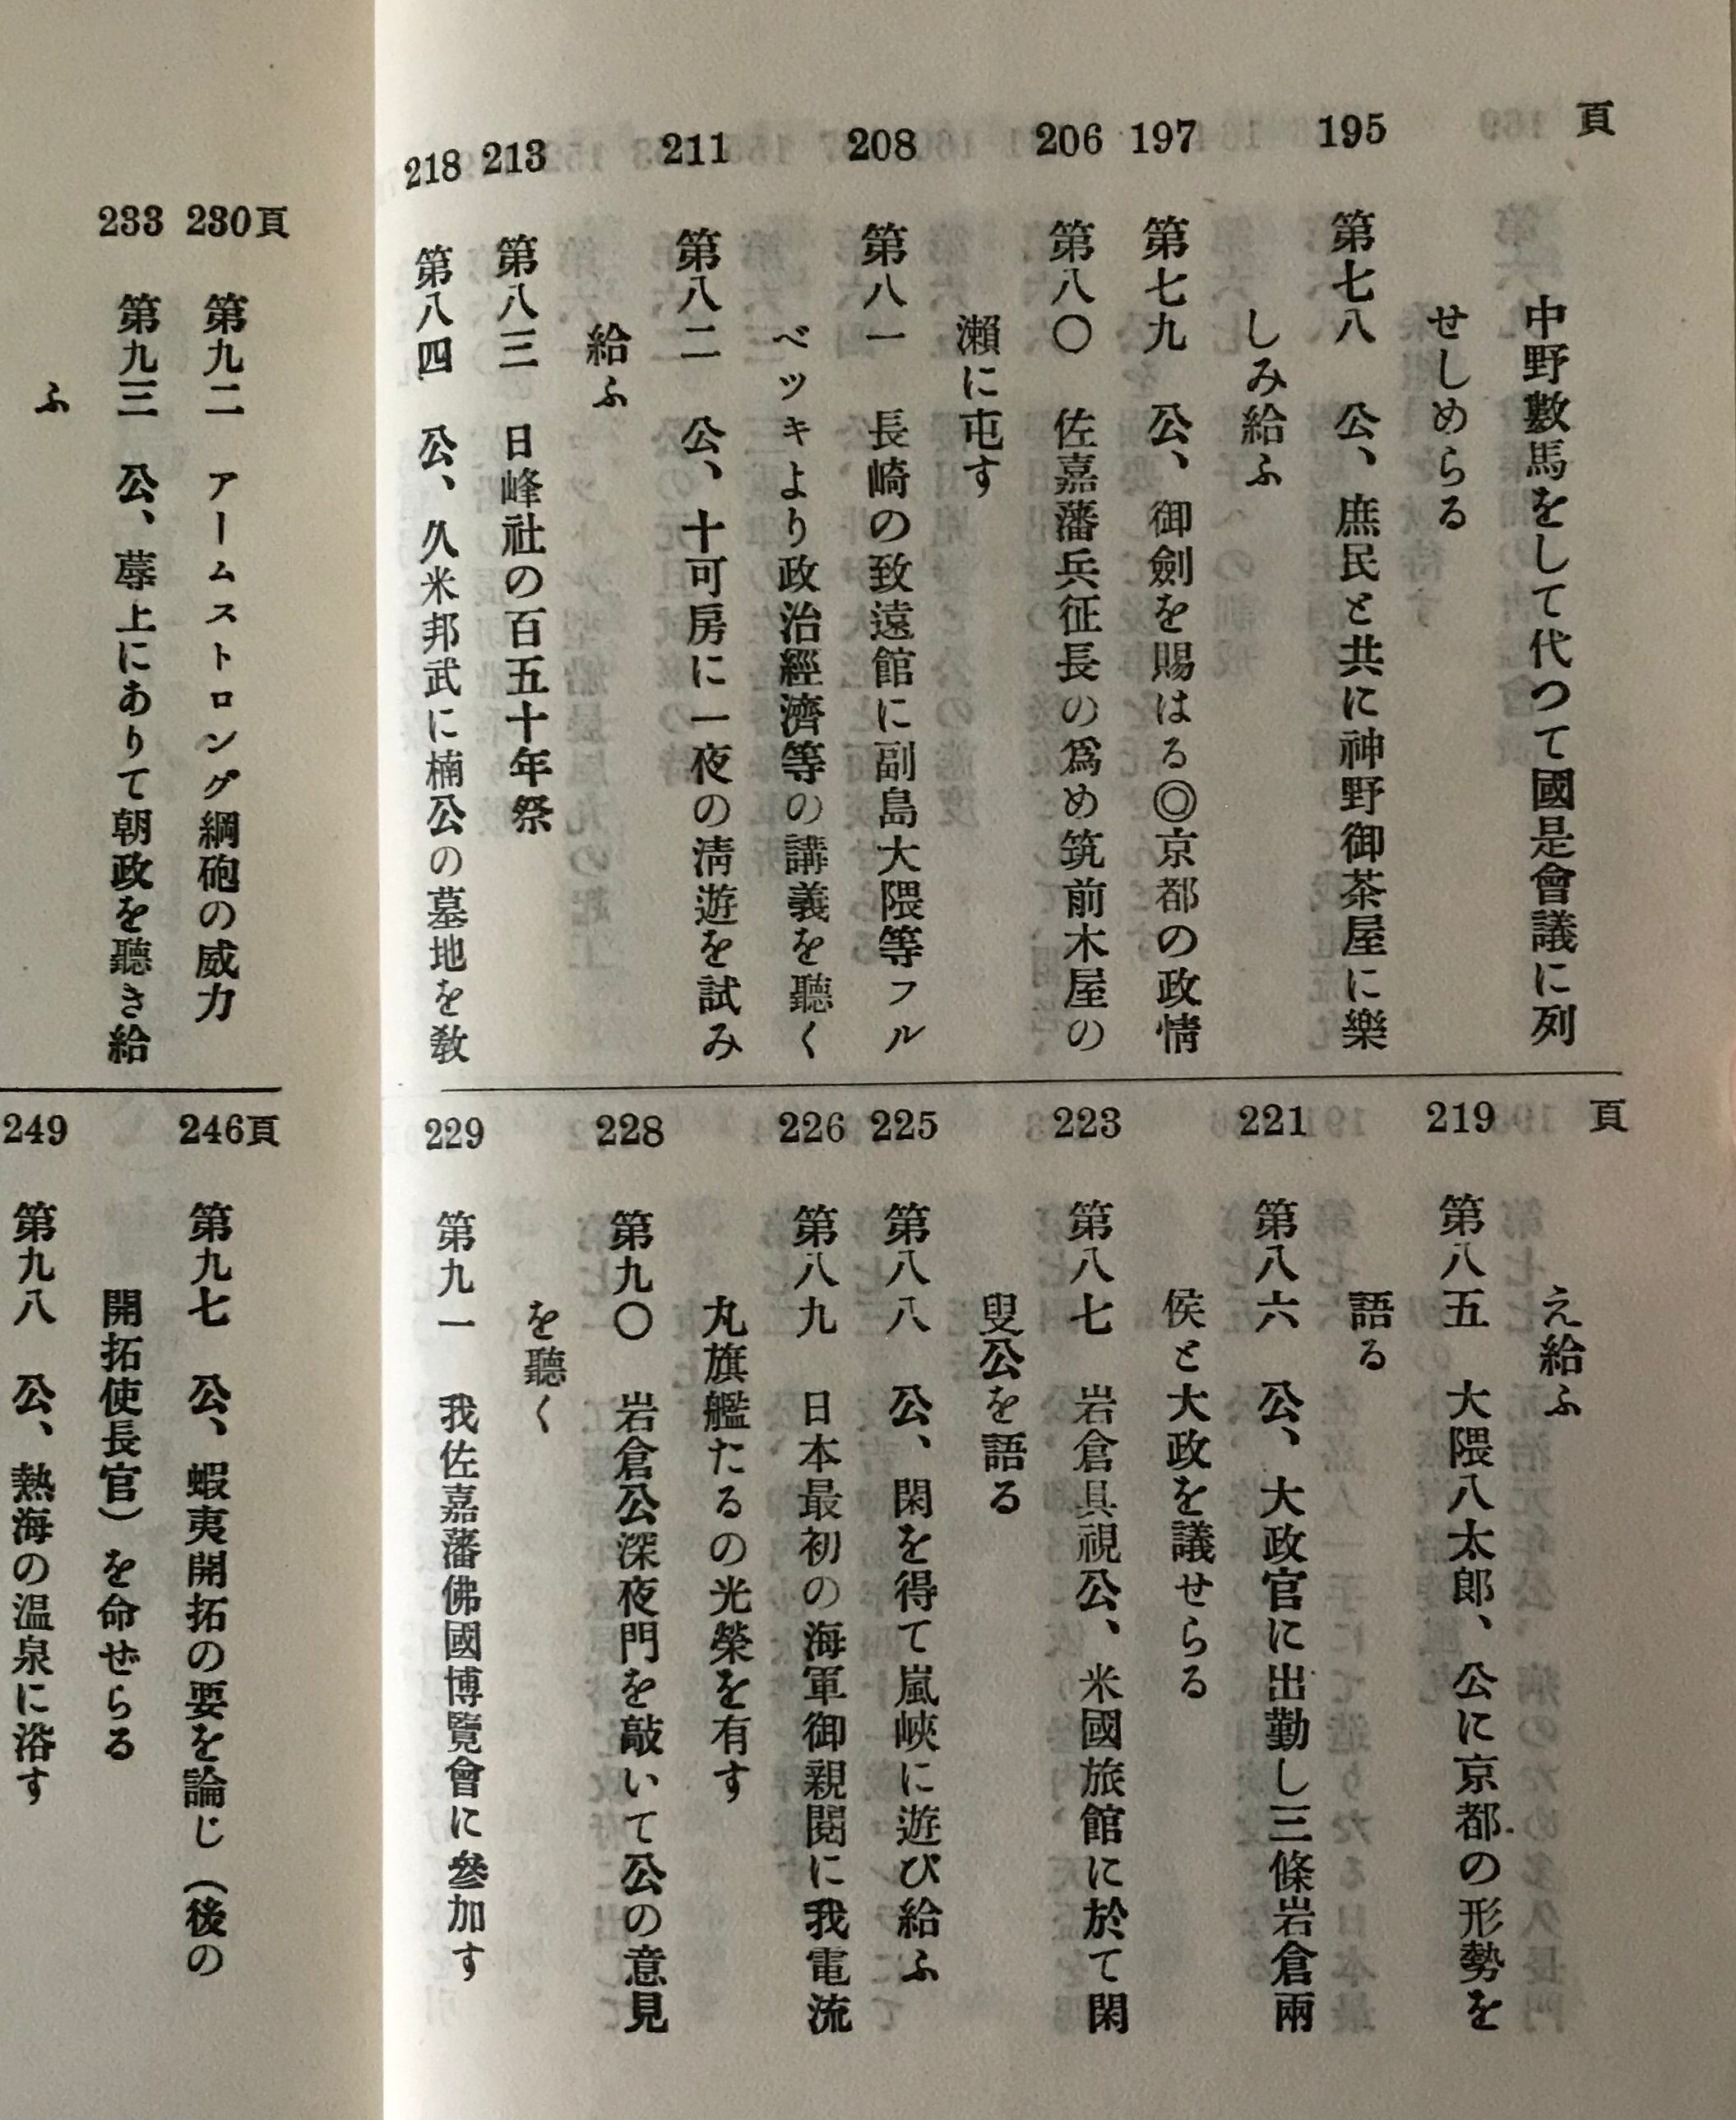 頁
中野數馬をして代つて國是會議に列
せしめらる
195
第七八　公、庶民と共に神野御茶屋に樂
しみ給ふ
197
第七九　公、御劍を賜はる◎京都の政情
206
第八〇　佐嘉藩兵征長の爲め筑前木屋の
瀬に屯す
208
第八一　長崎の致遠館に副島大隈等フル
ベツキより政治經濟等の講義を聽く
211
第八二　公、十可房に一夜の淸遊を試み
給ふ
213
第八三　日峰社の百五十年祭
218
第八四　公、久米邦武に楠公の墓地を敎
頁
え給ふ
219
第八五　大隈八太郎、公に京都の形勢を
語る
221
第八六　公、大政官に出勤し三條岩倉兩
侯と大政を議せらる
223
第八七　岩倉具視公、米國旅館に於て閑
叟公を語る
225
第八八　公、閑を得て嵐峽に遊び給ふ
226
第八九　日本最初の海軍御親閲に我電流
丸旗艦たるの光榮を有す
228
第九〇　岩倉公深夜門を敲いて公の意見
を聽く
229
第九一　我佐嘉藩佛國博覽會に參加す
230頁
第九二　アームストロング鋼砲の威力
233
第九三　公、蓐上にありて朝政を聽き給
ふ
246頁
第九七　公、蝦夷開拓の要を論じ（後の
開拓使長官）を命ぜらる
249
第九八　公、熱海の温泉に浴す